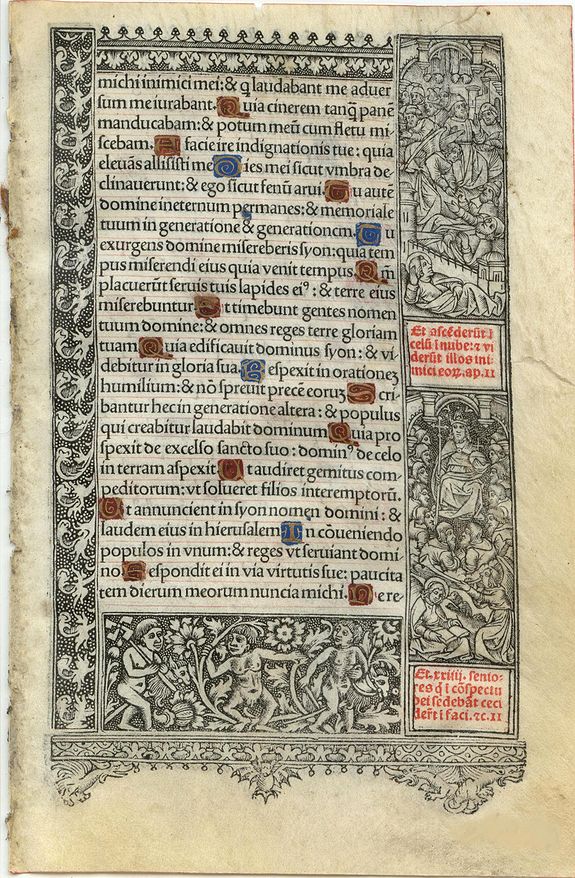 michi inimici mei: & q̃ laudabant me aduer
sum me iurabant. Quia cinerem tanq̃ panẽ
manducabam: & potum meũ cum fletu mi-
scebam. A facie ire indignationis tue: quia
eleuãs allisisti me Dies mei sicut vmbra de-
clinauerunt: & ego sicut fenũ arui. Tu autẽ
domine ineternum permanes: & memoriale
tuum in generatione & generationem. Tu
exurgens domine misereberis syon: quia tem
pus miserendi eius quia venit tempus. Qm̃
placuerũt seruis tuis lapides eiꝰ: & terre eius
miserebuntur Et timebunt gentes nomen
tuum domine: & omnes reges terre gloriam
tuam. Quia edificauit dominus syon: & vi-
debitur in gloria sua. Respexit in orationeʒ
humilium: & nõ spreuit precẽ eoruʒ Scri
bantur hec in generatione altera: & populus
qui creabitur laudabit dominum Quia pro
spexit de excelso sancto suo: dominꝰ de celo
in terram aspexit Ut audiret gemitus com
peditorum: vt solueret filios interemptorũ.
Ut annuncient in syon nomen domini: &
laudem eius in hierusalem In cõueniendo
populos in vnum: & reges vt seruiant domi
no. Respondit ei in via virtutis sue: paucita
tem dierum meorum nuncia michi. Ne re-
Et ascẽderũt ĩ
celũ i nube: ⁊ vi
derũt illos ini-
mici eoꝝ. ap. 11
Et. xxiiij. senio-
res q̃ i cõspectu
dei sedebãt ceci
derũt i faci. ⁊c. 11